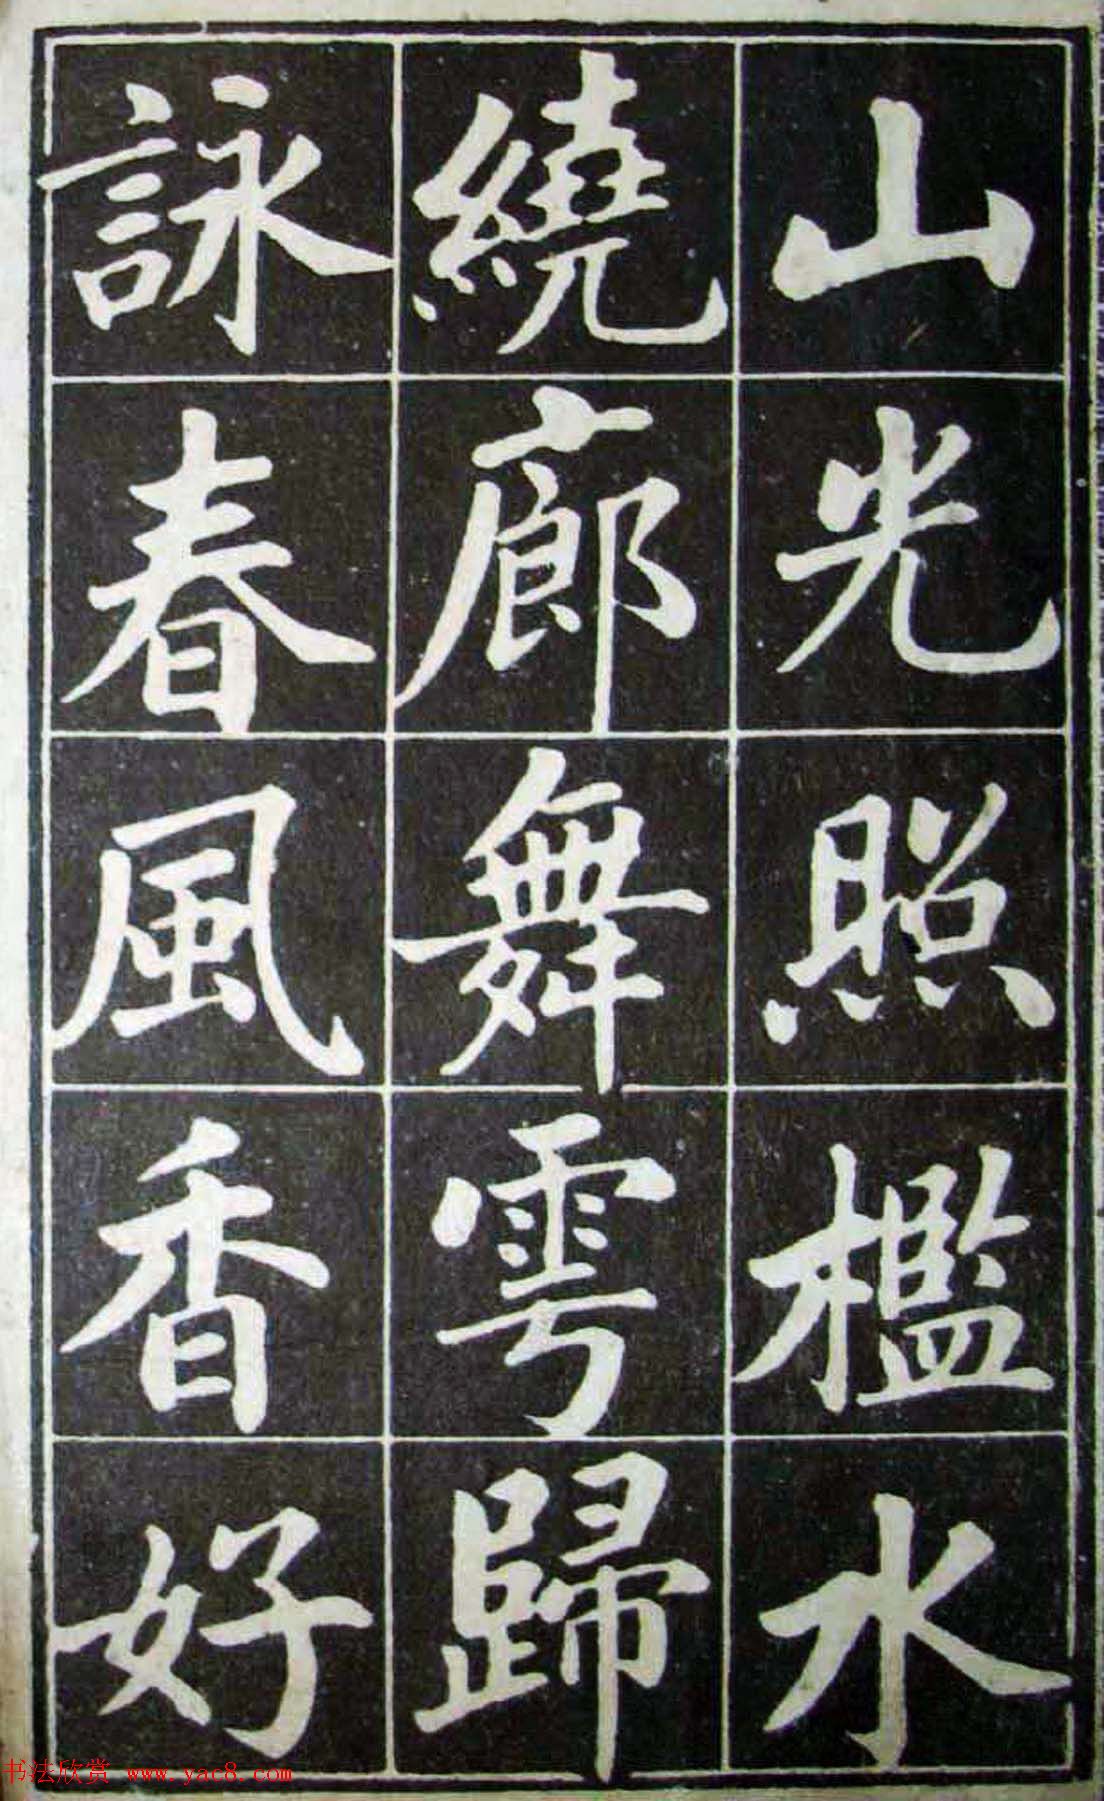 山光照檻水
繞廊舞雩歸
詠春風香好
书法欣赏 www.yac8.com